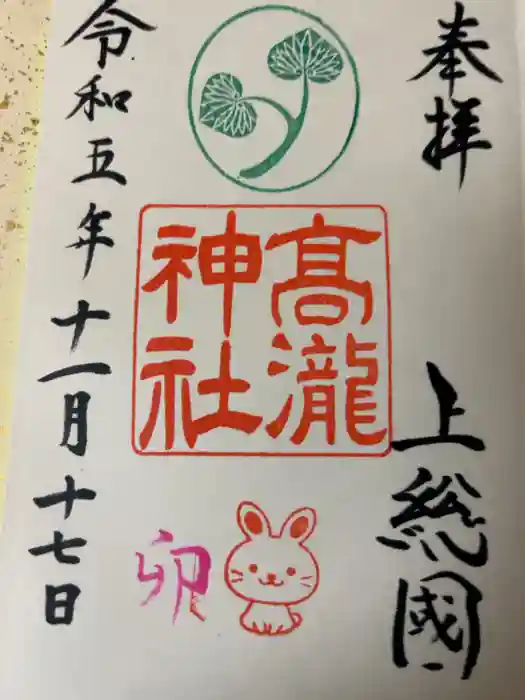 奉拝
上総國
高瀧
神社
卯
令和五年十一月十七日